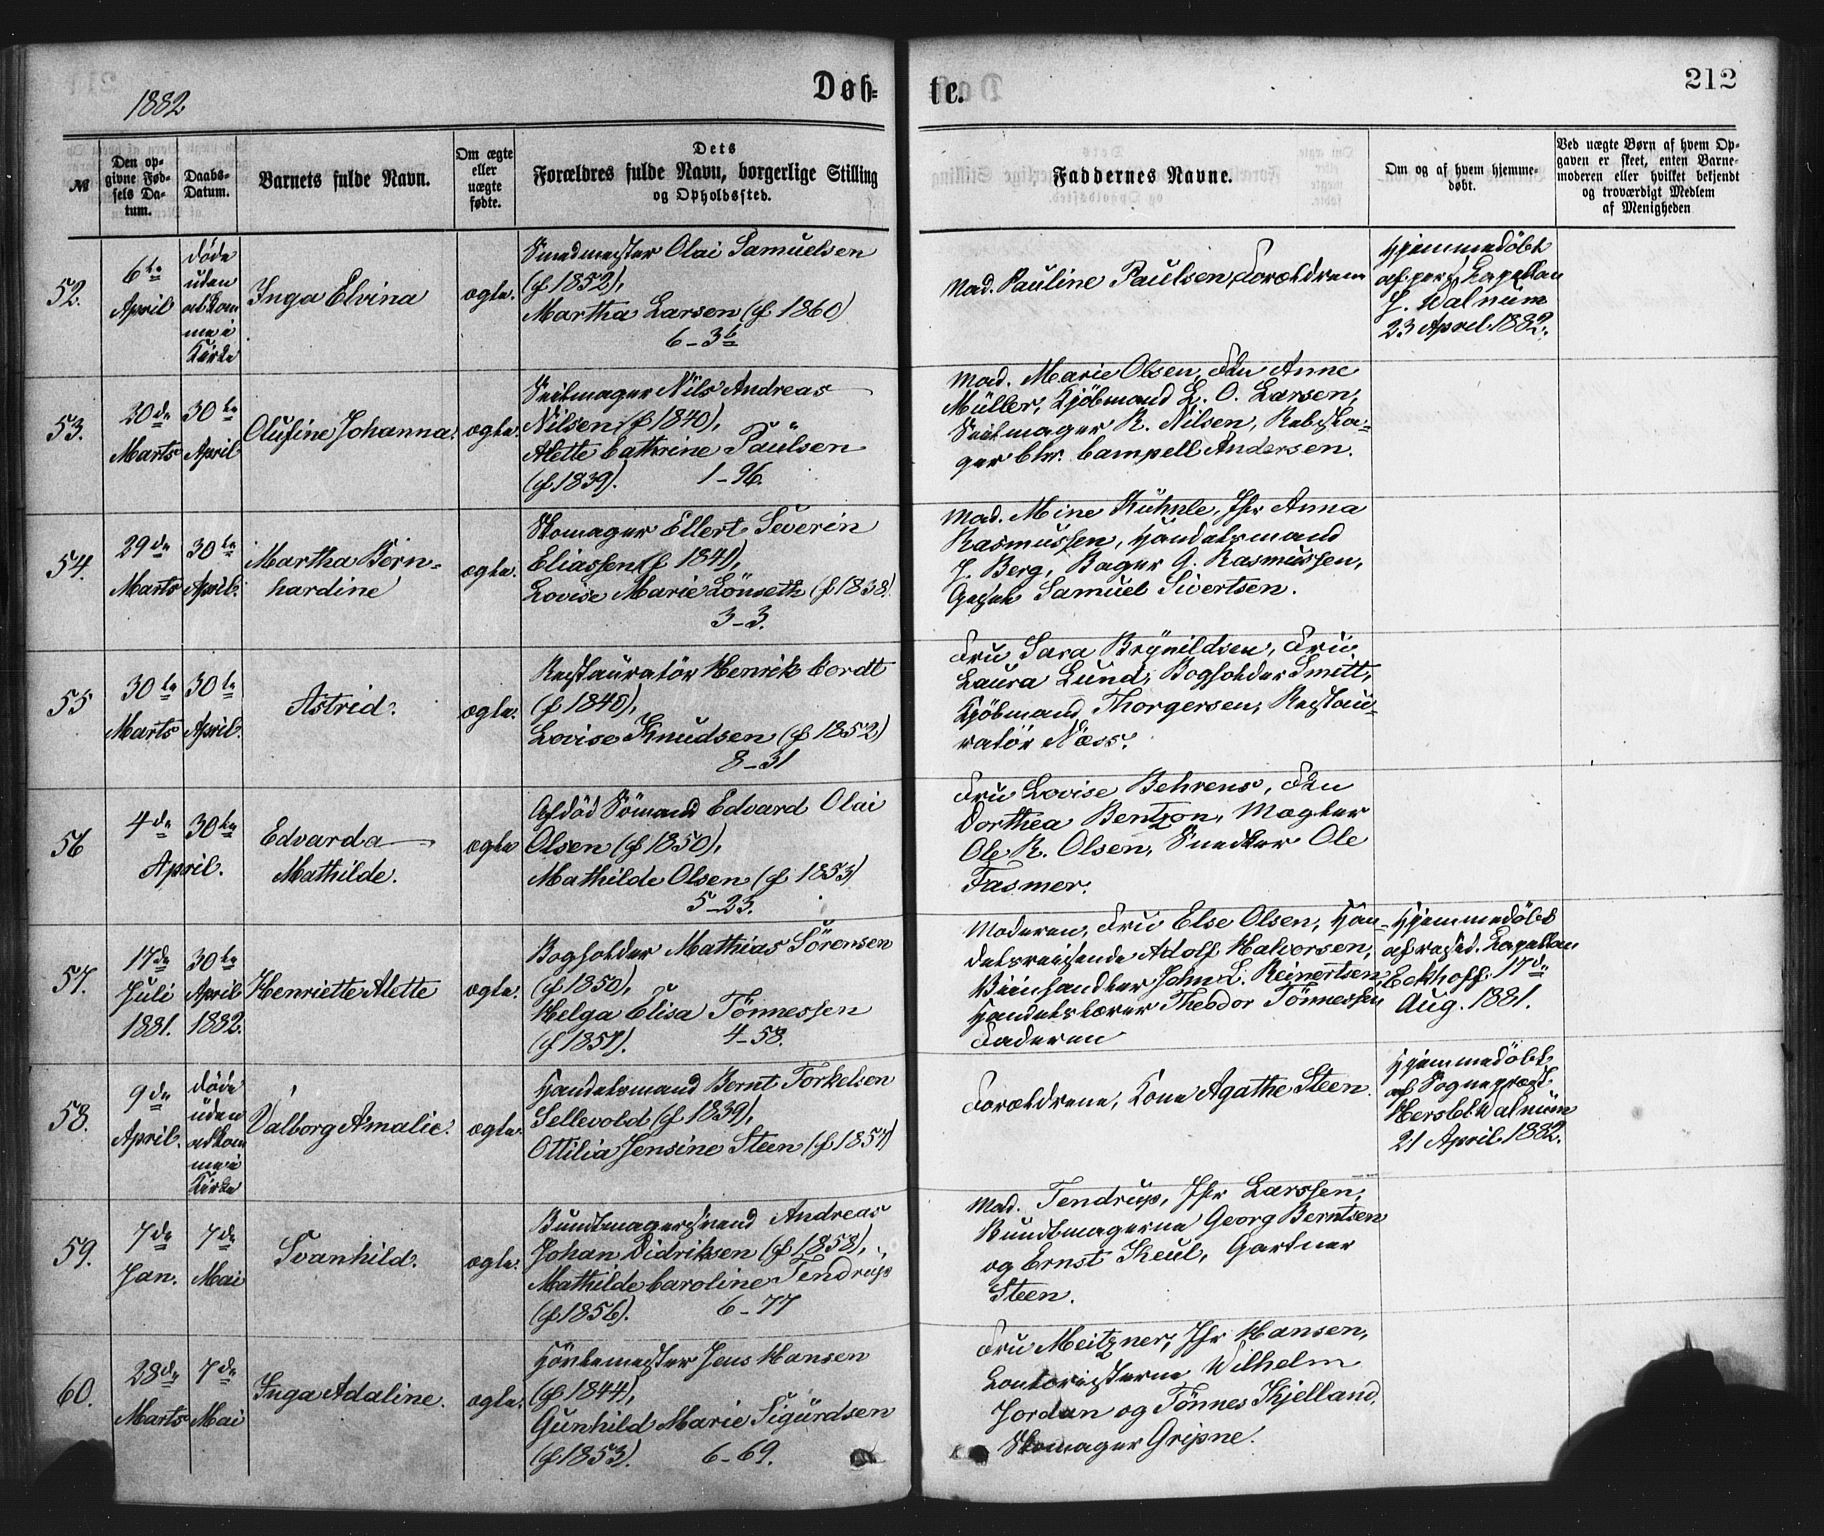 1882
Døb-
te.
212
№
Den op-
givne Fød-
sels Da-
tum.
Daabs-
Datum.
Barnets fulde Navn.
Om ægte
eller
uægte
fødte.
Dets
Forældres fulde Navn, borgerlige Stilling
og Opholdssted.
Faddernes Navne.
Om og af hvem hjemme-
døbt.
Ved uægte Børn af hvem Op-
gaven er skeet, enten Barne-
moderen eller hvilket bekjendt
og troværdigt Medlem
af Menigheden
52.
6te
April
døde
uden
at kom
me i
Kirke
Inga Elvina
ægte.
Smedmester Olai Samuelsen
(f 1852),
Martha Larsen (f 1860)
6-3b
Mad. Pauline Paulsen, Forældrene
Hjemmedøbt
af pers. Kapellan
J. Walnum
23 April 1882.
53.
20de
Marts
30te
April
Olufine Johanna.
ægte.
Seilmager Nils Andreas
Nilsen (f 1840),
Alette Cathrine Paulsen
(f 1839). 1-96.
Mad. Marie Olsen, Frk Anne
Müller, Kjöbmand L. O. Larsen,
Seilmager R. Nilsen, Rebsla-
ger Chr. Campell Andersen.
54.
29de
Marts
30te
April.
Martha Bern-
hardine
ægte.
Skomager Ellert Severin
Eliassen (f 1841),
Lovise Marie Lönseth (f 1838)
3-3.
Mad. Mine Kühnle, Jfr Anna
Rasmussen, Handelsmand
J. Berg, Bager G. Rasmussen,
Gesel Samuel Sivertsen.
55
30te
Marts
30te
April.
Astrid.
ægte.
Restauratör Henrik Cordt
(f 1845),
Lovise Knudsen (f 1852)
8-31
Fru Sara Brynildsen, Fru
Laura Lund, Bogholder Smitt,
Kjöbmand Thorgersen, Restau-
ratör Næss.
56
4de
30te
April.
Edvarda
Mathilde.
ægte
Afdöd Sömand Edvard Olai
Olsen (f 1850),
Mathilde Olsen (f 1853)
5-23.
Fru Lovise Behrens, Frk
Dorthea Bentzon, Mægler
Ole R. Olsen, Snedker Ole
Fasmer.
57.
17de
Juli
1881.
30te
April
1882.
Henriette Alette
ægte.
Bogholder Mathias Sörensen
(f 1850),
Helga Elisa Tönnessen
(f 1857). 4-58.
Moderen, Fru Else Olsen, Han-
delsreisende Adolf Halvorsen,
Viinhandler John L. Reinertsen,
Handelslærer Theodor Tönnessen
Faderen
Hjemmedöbt
af resid. Kapellan
Eckhoff 17de
Aug. 1881.
58.
9de
April.
døde
uden
at kom
me i
Kirke
Valborg Amalie.
ægte.
Handelsmand Bernt Torkelsen
Sellevold (f 1839),
Ottilia Jensine Steen (f 1857)
Forældrene, Kone Agathe Steen.
Hjemmedöbt
af Sogneprest
Hersleb Walnum
21 April 1882.
59.
7de
Jan.
7de
Mai
Svanhild.
ægte.
Bundtmagersvend Andreas
Johan Didriksen (f 1858),
Mathilde Caroline Tendrup
(f 1856). 6-77
Mad. Tendrup, Jfr Larssen,
Bundtmagerne Georg Berntsen
og Ernst Keul, Gartner
Steen.
60.
28de
Marts
7de
Mai
Inga Adaline.
ægte.
Jens Hansen
(f 1844),
Gunhild Marie Sigurdsen
(f 1853). 6-69.
Fru Meitzner, Jfr Hansen,
Kontoristerne Wilhelm
Jordan og Tönnes Kjelland,
Skomager Gripne.